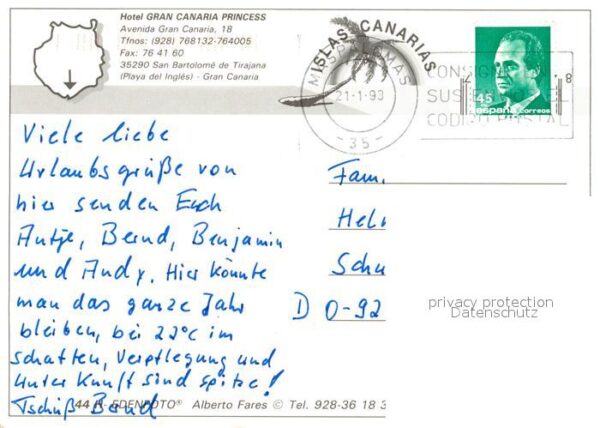 Hotel GRAN CANARIA PRINCESS
Avenida Gran Canaria, 18
Tfnos: (928) 768132-764005
Fax: 76 41 60
35290 San Bartolomé de Tirajana
(Playa del Inglés) - Gran Canaria
ISLAS CANARIAS
21-1-93
-35-
CONSIG
SUS
CODI POSTAL
8
45
españa
correos
Viele liebe
Urlaubsgrüße von
hier senden Euch
Antje, Bernd, Benjamin
und Andy. Hier könnte
man das ganze Jahr
bleiben, bei 22°C im
Schatten, Verpflegung und
Unterkunft sind spitze!
Tschüß Bernd
Fam.
Hel
Schu
D O-92
privacy protection
Datenschutz
EDENFOTO® Alberto Fares © Tel. 928-36 18 3